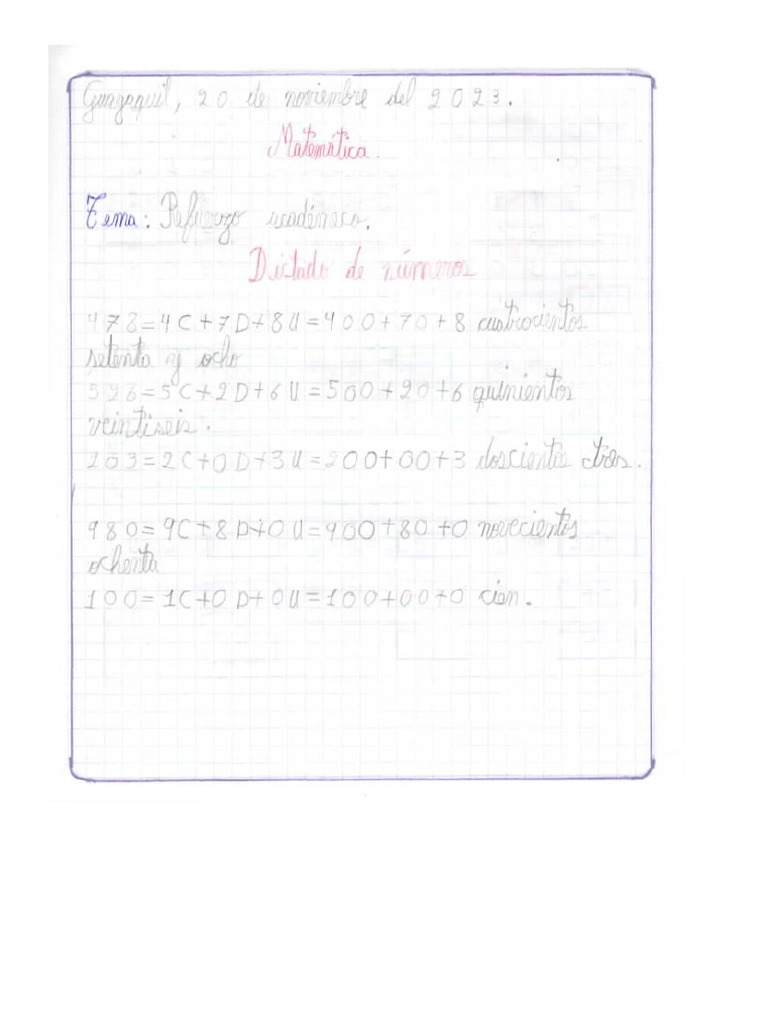 Guayaquil, 20 de noviembre del 2023.
Matemática.
Tema: Refuerzo académico.
Dictado de números
478=4C+7D+8U=400+70+8 cuatrocientos
setenta y ocho
526=5C+2D+6U=500+20+6 quinientos
veintiseis.
203=2C+0D+3U=200+00+3 doscientos tres.
980=9C+8D+0U=900+80+0 novecientos
ochenta
100=1C+0D+0U=100+00+0 cien.